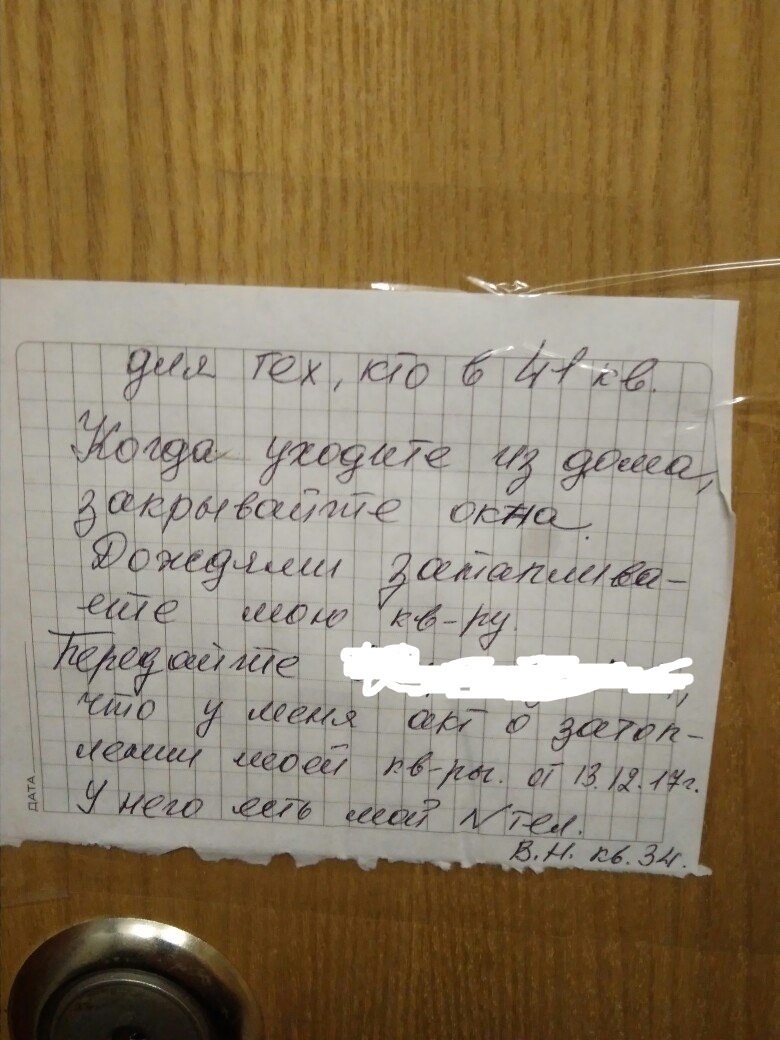 для тех, кто в 41 кв.
Когда уходите из дома,
закрывайте окна.
Дождями затаплива-
ете мою кв-ру.
Передайте
что у меня акт о затоп-
лении моей кв-ры. от 13.12.17г.
У него есть мой N тел.
В.Н. кв. 34.
ДАТА